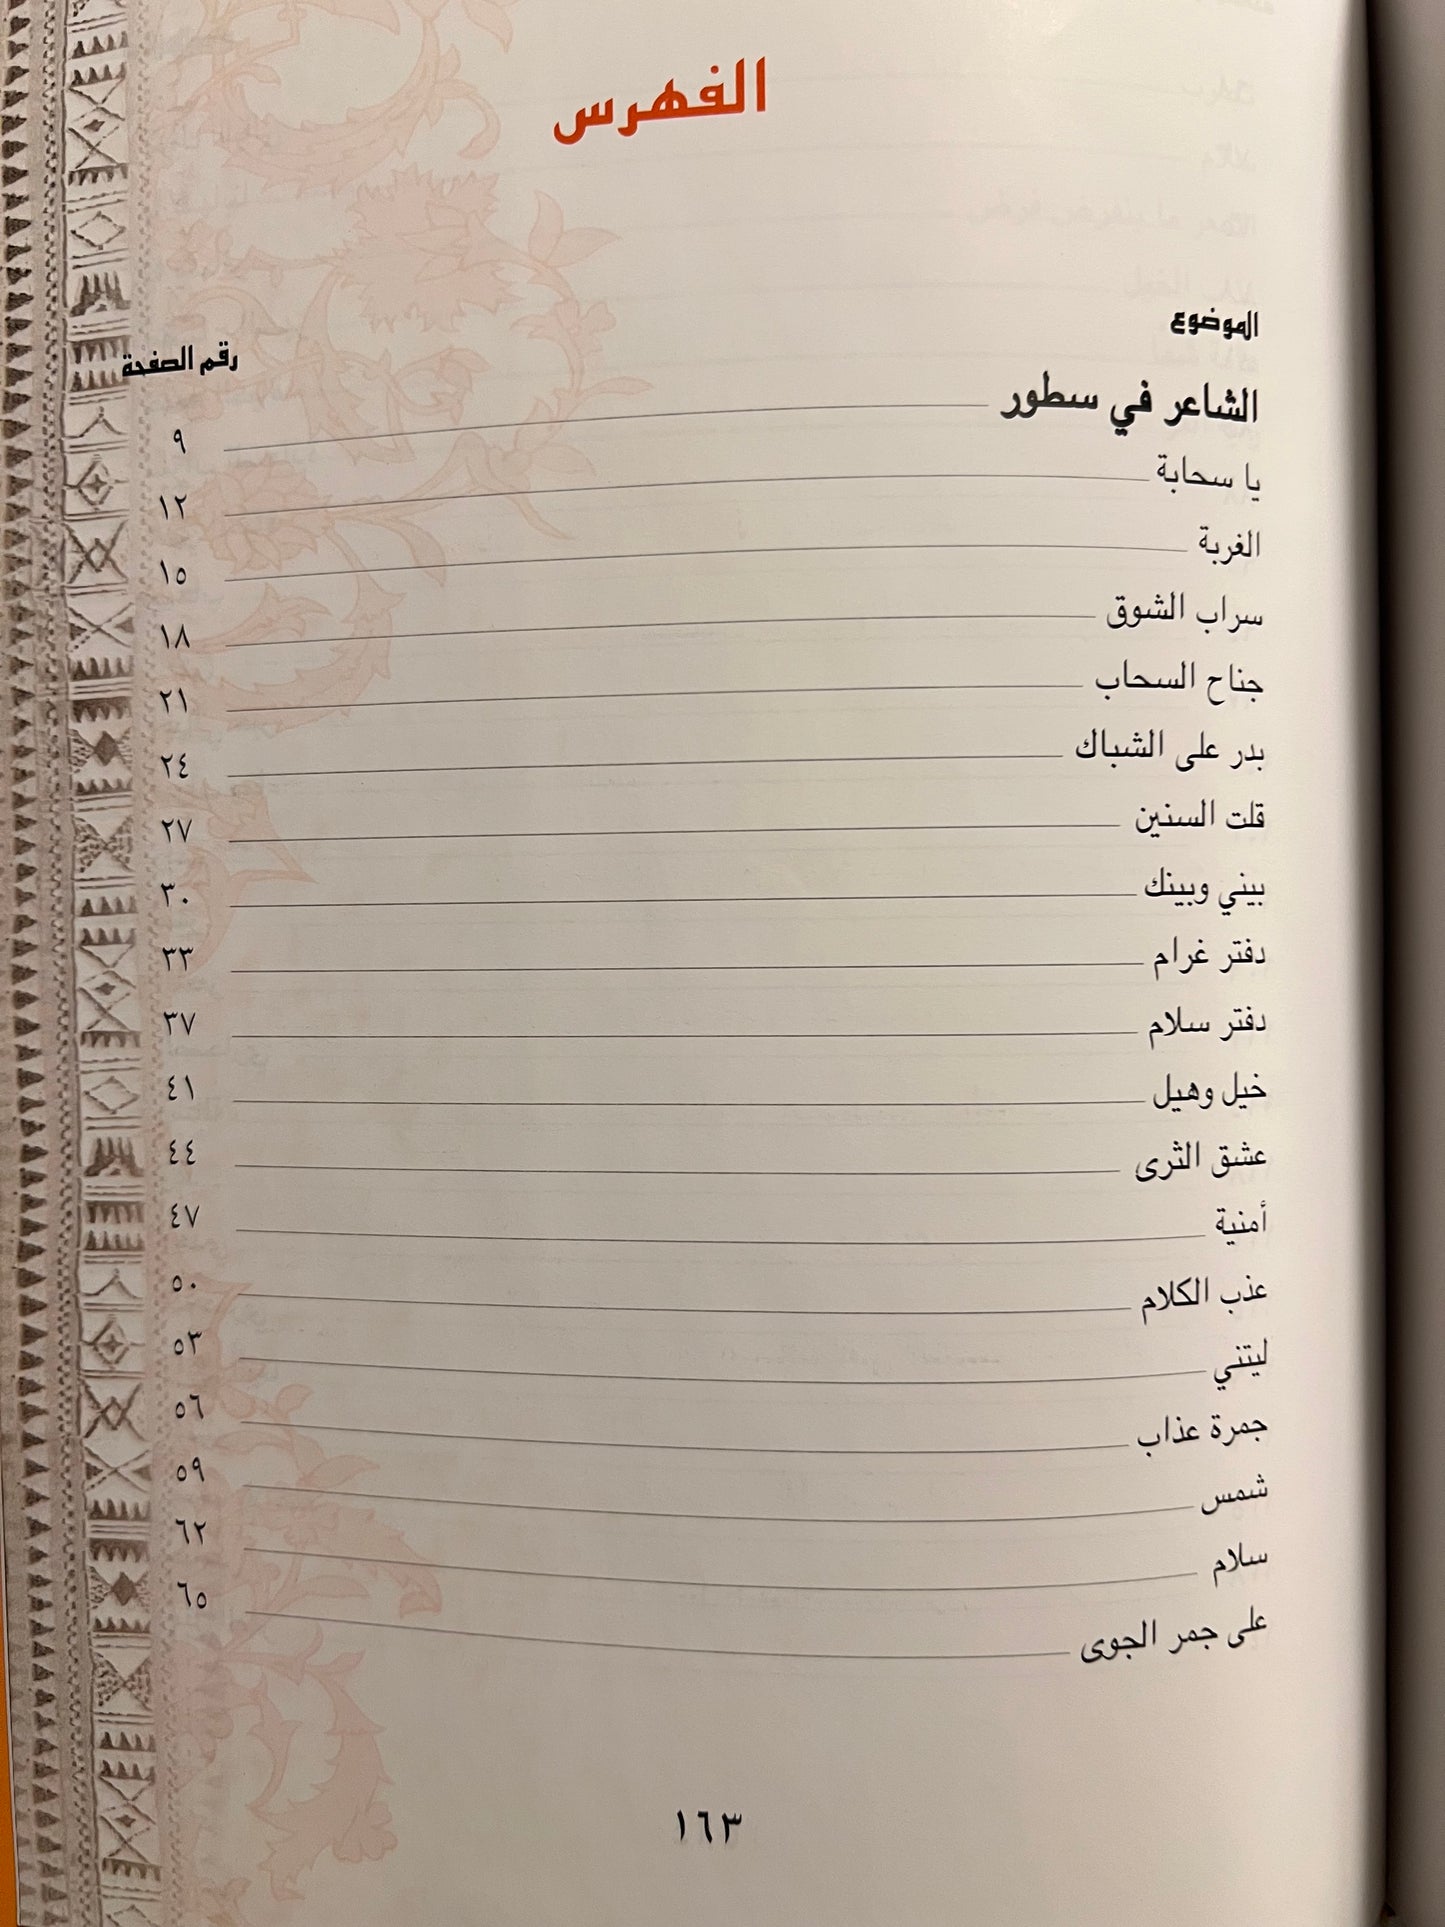 الفهرس
الموضوع
رقم الصفحة
الشاعر في سطور ٩
يا سحابة ١٢
الغربة ١٥
سراب الشوق ١٨
جناح السحاب ٢١
بدر على الشباك ٢٤
قلت السنين ٢٧
بيني وبينك ٣٠
دفتر غرام ٣٣
دفتر سلام ٣٧
خيل وهيل ٤١
عشق الثرى ٤٤
أمنية ٤٧
عذب الكلام ٥٠
ليتني ٥٣
جمرة عذاب ٥٦
شمس ٥٩
سلام ٦٢
على جمر الجوى ٦٥
١٦٣